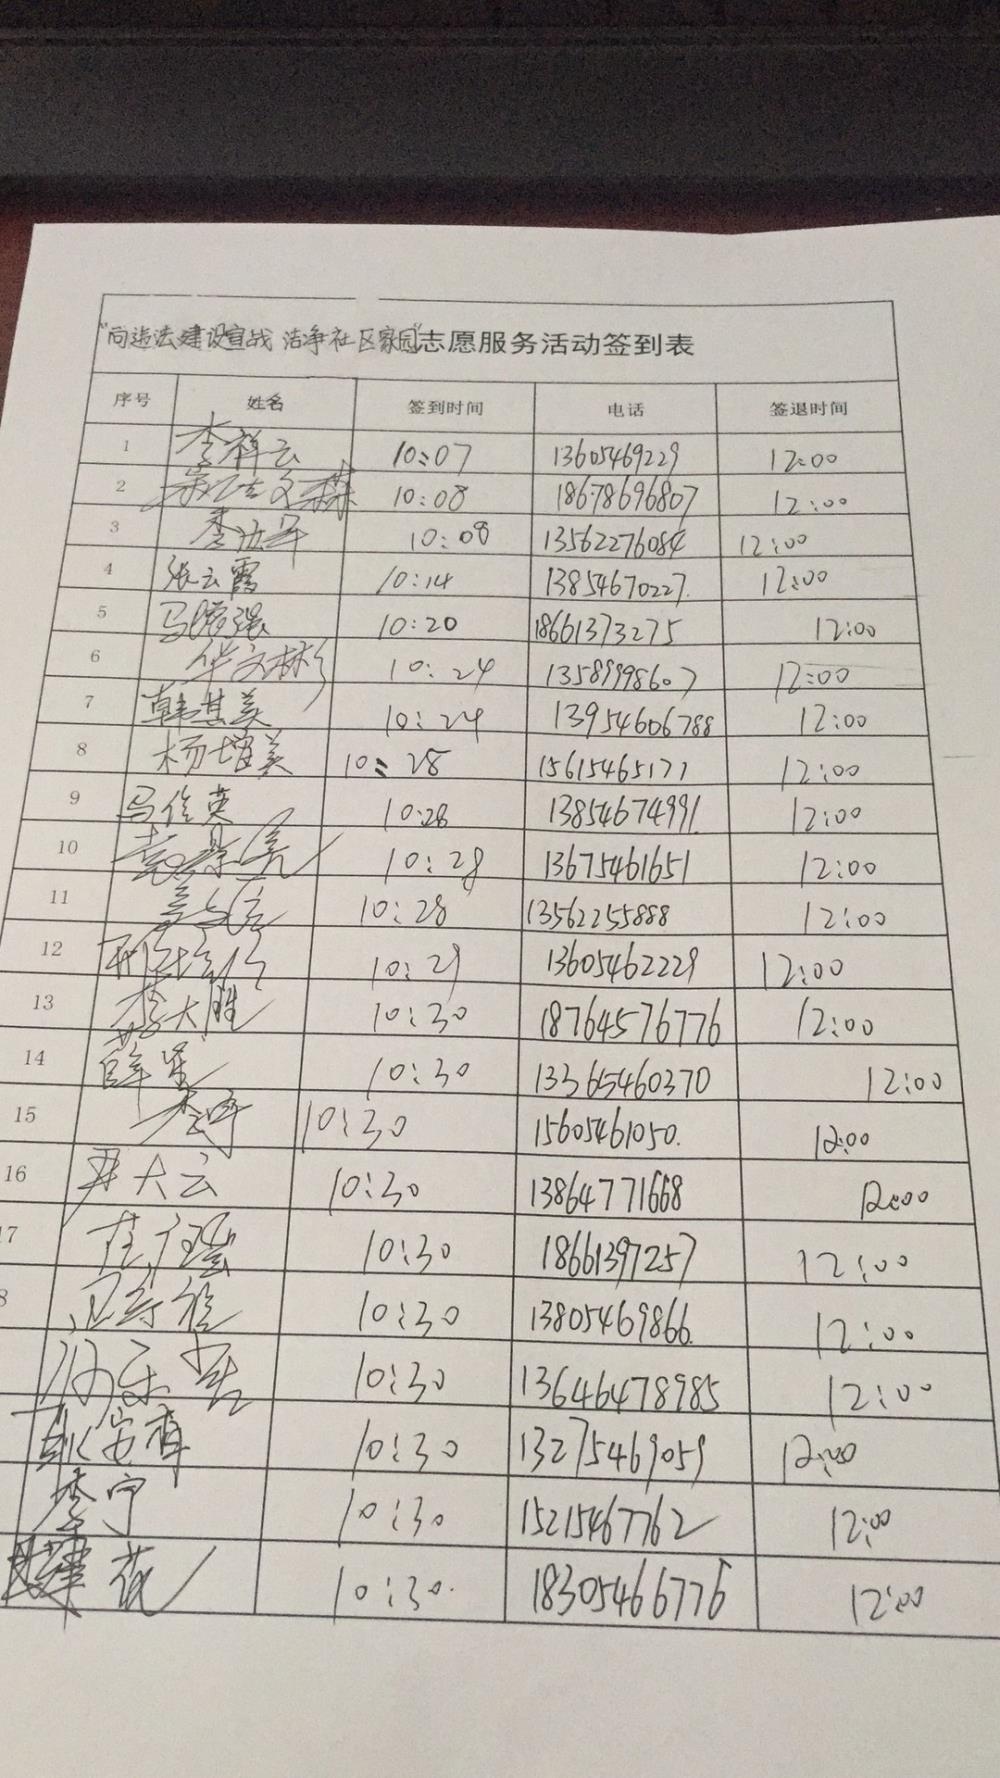 "向违法建设宣战 洁净社区家园"志愿服务活动签到表
序号 姓名 签到时间 电话 签退时间
1 李祥云 10:07 13605469229 12:00
2 10:08 18678696807 12:00
3 李 10:08 13562276084 12:00
4 张云霞 10:14 13854670227. 12:00
5 马 强 10:20 18661373275 12:00
6 华文彬 10:24 13589998607 12:00
7 韩其美 10:24 13954606788 12:00
8 杨增美 10:28 15615465177 12:00
9 马俊英 10:28 13854674991. 12:00
10 10:28 13675461651 12:00
11 10:28 13562255888 12:00
12 邢 10:29 13605462229 12:00
13 大胜 10:30 18764576776 12:00
14 薛 10:30 13365460370 12:00
15 李 10:30 15605461050. 12:00
16 尹大云 10:30 13864771668 12:00
17 10:30 18661397257 12:00
8 10:30 13805469866. 12:00
10:30 13646478985 12:00
耿安春 10:30 13275469059 12:00
李宁 10:30 15215467762 12:00
花 10:30. 18305466776 12:00